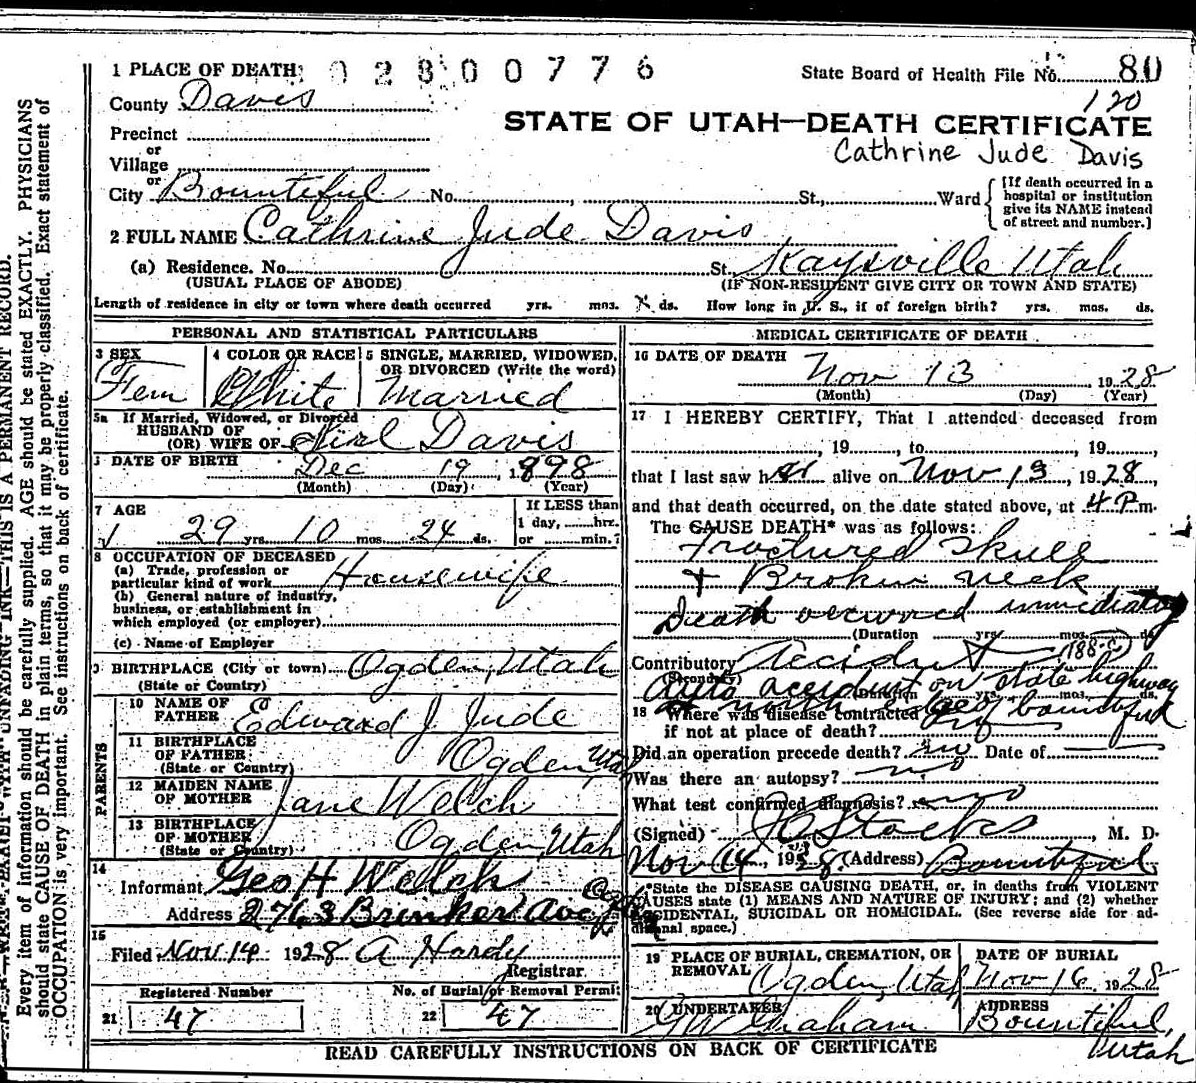 1 PLACE OF DEATH 0 2 8 0 0 7 7 6 State Board of Health File No. 80
County Davis 120
STATE OF UTAH—DEATH CERTIFICATE
Precinct
or
Cathrine Jude Davis
Village
or
City Bountiful No. , St., Ward {[If death occurred in a hospital or institution give its NAME instead of street and number.]
2 FULL NAME Cathrine Jude Davis
(a) Residence. No. St. Kaysville Utah
(USUAL PLACE OF ABODE) (IF NON-RESIDENT GIVE CITY OR TOWN AND STATE)
Length of residence in city or town where death occurred yrs. mos. ds. How long in U. S., if of foreign birth? yrs. mos. ds.
PERSONAL AND STATISTICAL PARTICULARS
3 SEX 4 COLOR OR RACE 5 SINGLE, MARRIED, WIDOWED,
OR DIVORCED (Write the word)
Fem White Married
5a If Married, Widowed, or Divorced
HUSBAND OF
(OR) WIFE OF Davis
DATE OF BIRTH Dec 19 1898
(Month) (Day) (Year)
7 AGE If LESS than
1 day, hrs.
29 yrs. 10 mos. 24 ds. or min.?
8 OCCUPATION OF DECEASED
(a) Trade, profession or
particular kind of work Housewife
(b) General nature of industry,
business, or establishment in
which employed (or employer)
(c) Name of Employer
BIRTHPLACE (City or town) Ogden, Utah
(State or Country)
PARENTS
10 NAME OF
FATHER Edward J. Jude
11 BIRTHPLACE
OF FATHER Ogden Utah
(State or Country)
12 MAIDEN NAME
OF MOTHER Jane Welch
13 BIRTHPLACE
OF MOTHER Ogden, Utah
(State or Country)
14
Informant Geo H Welch
Address 2763 Brinker Ave Ogden
15
Filed Nov 14 1928 A Hardy
Registrar
Registered Number No. of Burial or Removal Permit
21 47 22 47
MEDICAL CERTIFICATE OF DEATH
16 DATE OF DEATH
Nov 13, 1928
(Month) (Day) (Year)
17 I HEREBY CERTIFY, That I attended deceased from
, 19 , to , 19 ,
that I last saw her alive on Nov 13, 1928,
and that death occurred, on the date stated above, at 4 P m.
The CAUSE DEATH* was as follows:
Fractured Skull
+ Broken neck
Death occurred immediately
(Duration yrs. mos. ds.
Contributory Accident 188-c
(Secondary)
Auto accident on state highway
(Duration yrs. mos. ds.
at north end of bountiful
18 Where was disease contracted
if not at place of death?
Did an operation precede death? no Date of
Was there an autopsy? no
What test confirmed diagnosis? no
(Signed) Stocks, M. D.
Nov 14, 1928 (Address) Bountiful
*State the DISEASE CAUSING DEATH, or, in deaths from VIOLENT
CAUSES state (1) MEANS AND NATURE OF INJURY; and (2) whether
ACCIDENTAL, SUICIDAL OR HOMICIDAL. (See reverse side for ad-
ditional space.)
19 PLACE OF BURIAL, CREMATION, OR
REMOVAL Ogden, Utah
DATE OF BURIAL
Nov 16, 1928
20 UNDERTAKER
G W Graham
ADDRESS
Bountiful, Utah
READ CAREFULLY INSTRUCTIONS ON BACK OF CERTIFICATE
THIS IS A PERMANENT RECORD.
Every item of information should be carefully supplied. AGE should be stated EXACTLY. PHYSICIANS
should state CAUSE OF DEATH in plain terms, so that it may be properly classified. Exact statement of
OCCUPATION is very important. See instructions on back of certificate.